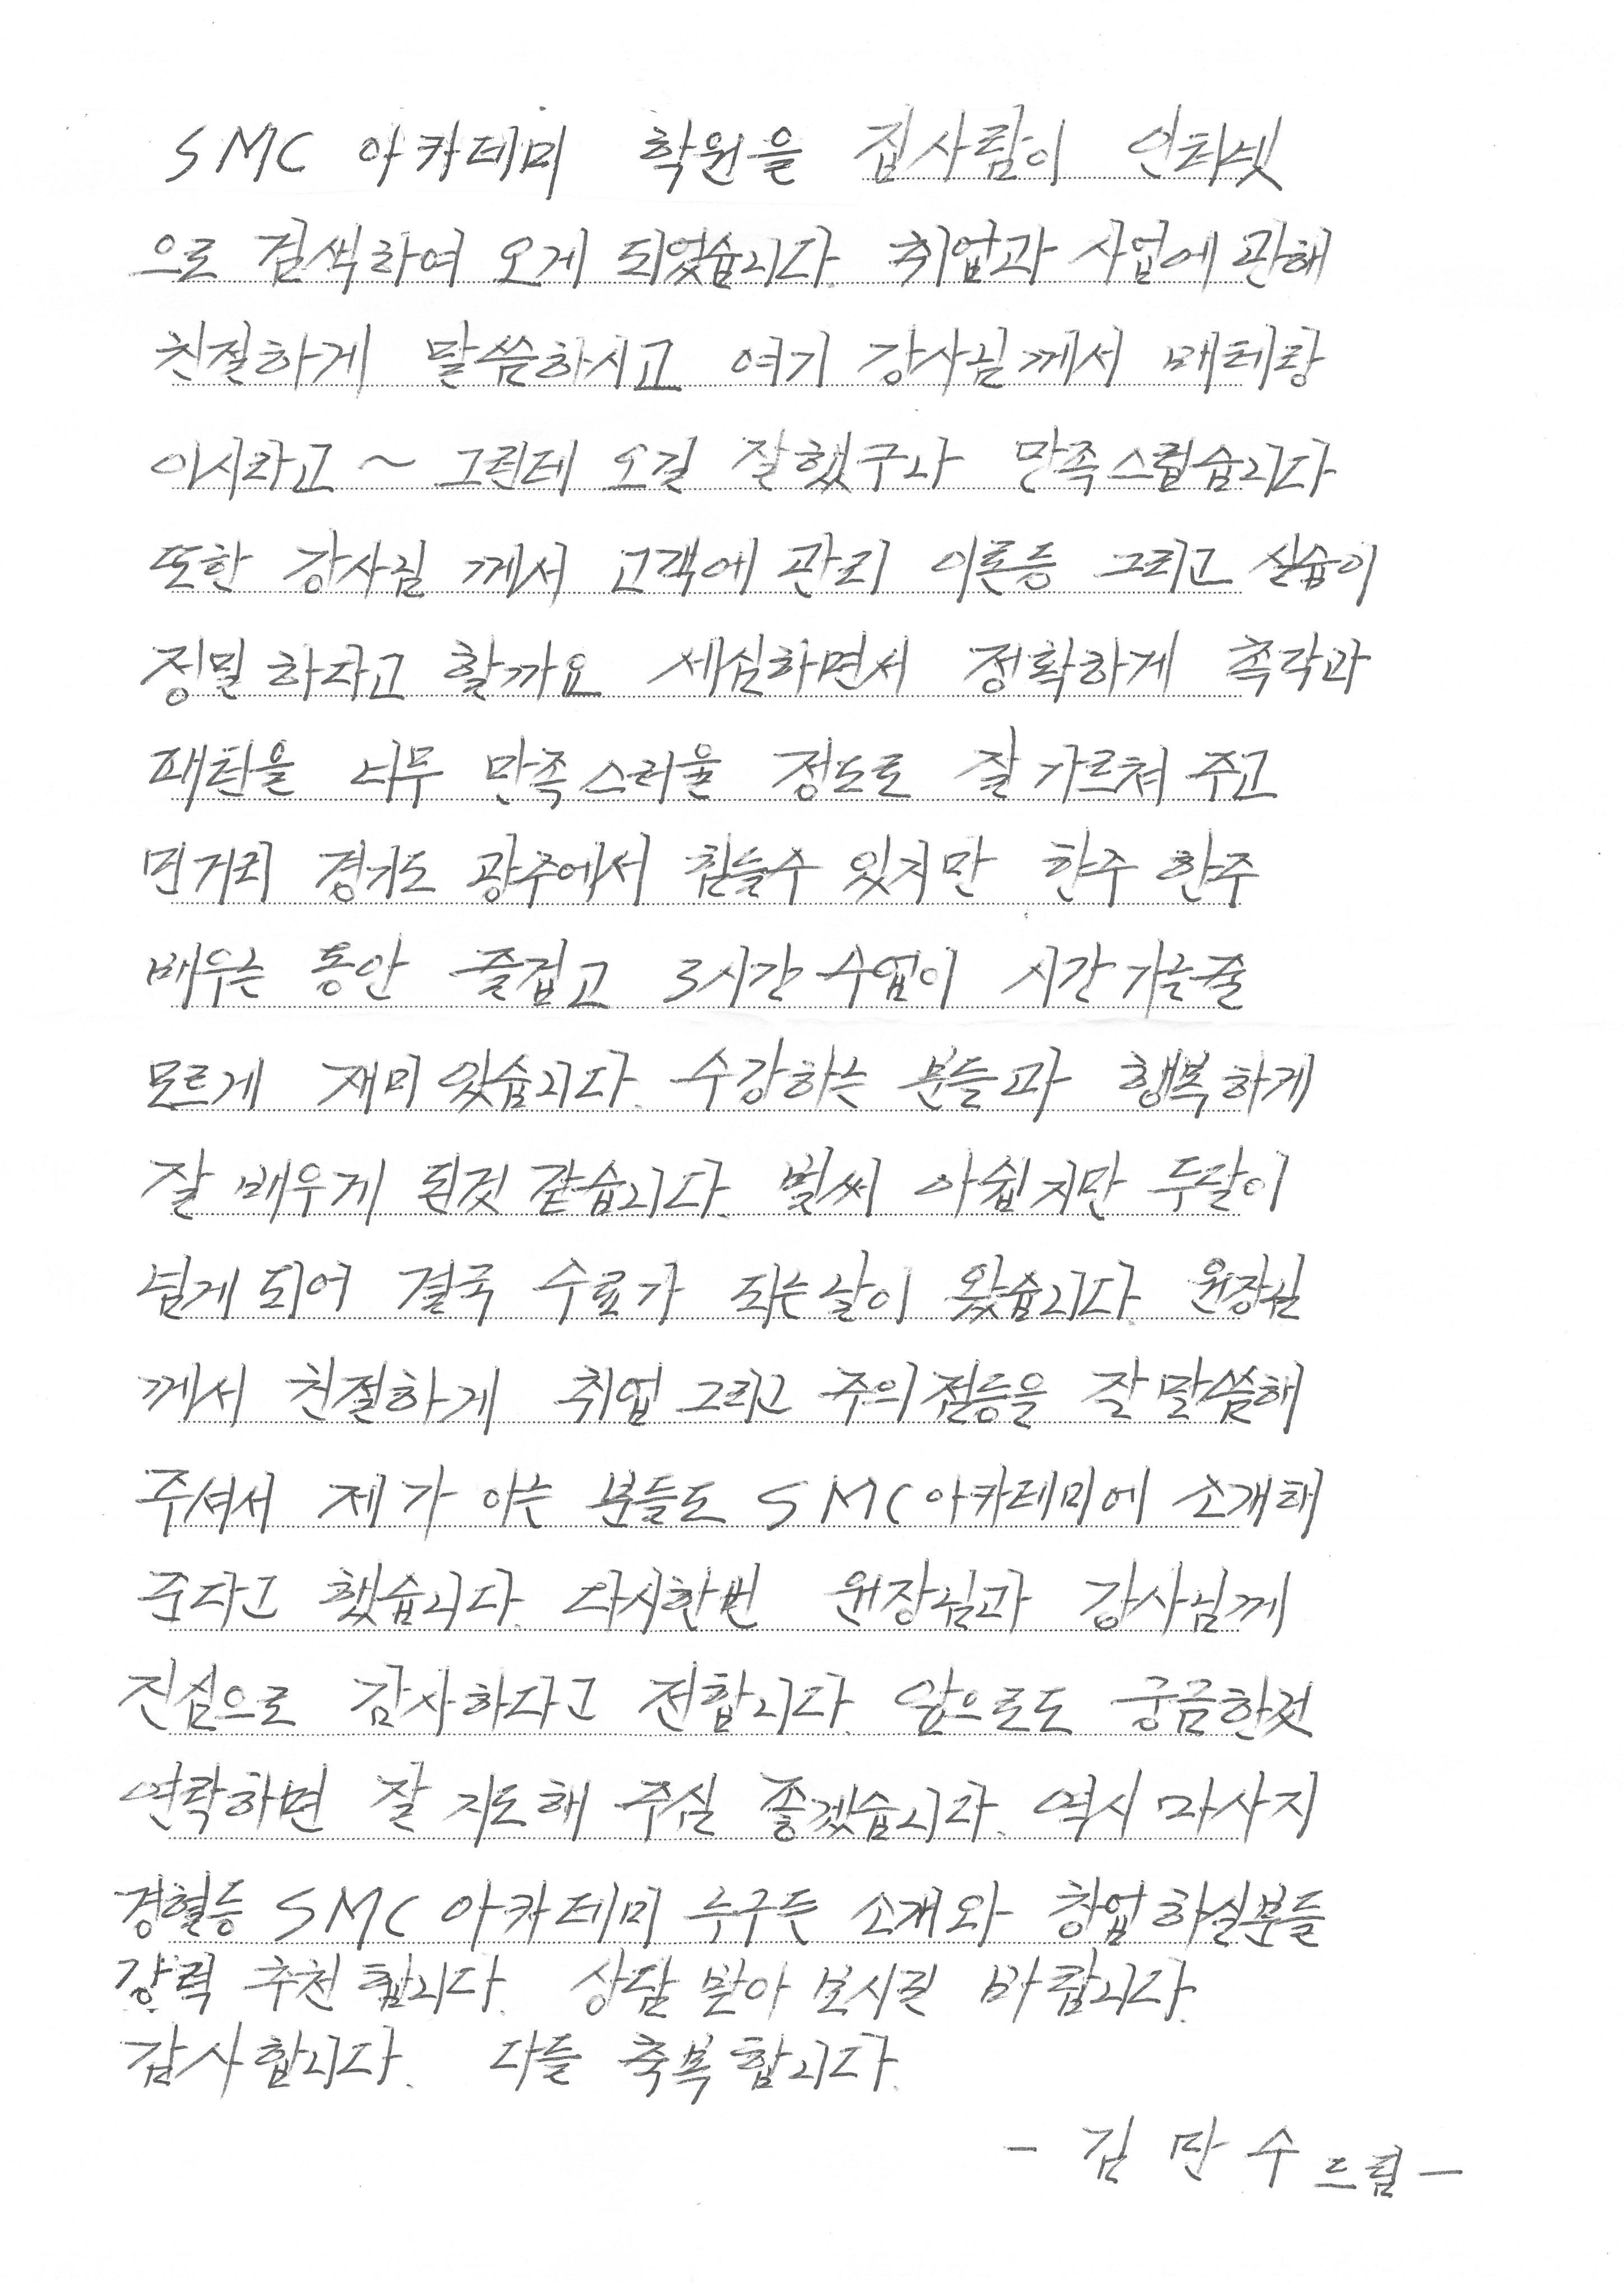 SMC 아카데미 학원을 집사람이 인터넷
으로 검색하여 오게 되었습니다. 취업과 사업에 관해
친절하게 말씀하시고 여기 강사님께서 배테랑
이시라고 ~ 그런데 오길 잘했구나 만족스럽습니다
또한 강사님 께서 고객에 관리 이론등 그리고 실습이
정밀하다고 할까요 세심하면서 정확하게 촉각과
패턴을 너무 만족스러울 정도로 잘 가르쳐 주고
먼거리 경기도 광주에서 힘들수 있지만 한주 한주
배우는 동안 즐겁고 3시간 수업이 시간 가는줄
모르게 재미 있습니다. 수강하는 분들과 행복하게
잘 배우게 된것 같습니다. 벌써 아쉽지만 두달이
넘게 되어 결국 수료가 되는날이 왔습니다. 원장님
께서 친절하게 취업 그리고 주의점등을 잘 말씀해
주셔서 제가 아는 분들도 SMC아카데미에 소개해
준다고 했습니다. 다시한번 원장님과 강사님께
진심으로 감사하다고 전합니다. 앞으로도 궁금한것
연락하면 잘 지도해 주심 좋겠습니다. 역시 마사지
경혈등 SMC 아카데미 누구든 소개와 창업하실분들
강력 추천 합니다. 상담 받아 보시길 바랍니다.
감사합니다. 다들 축복합니다.
- 김만수 드림 -